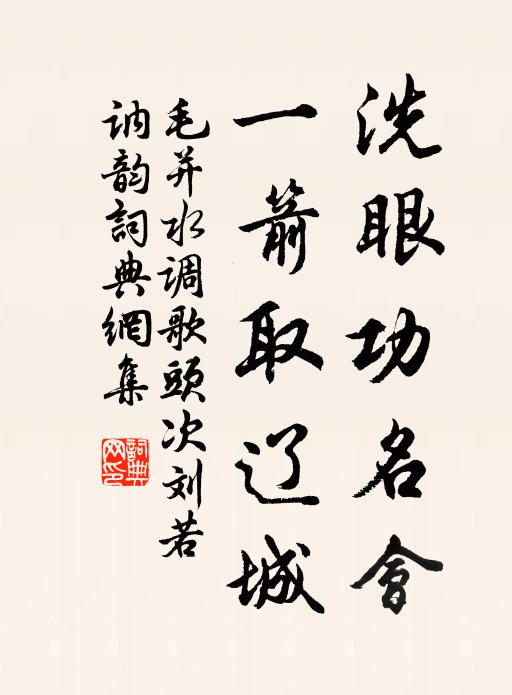 洗眼功名會
一箭取辽城
毛并水调歌頭次刘若
讷韵詞典網集
詞典网印